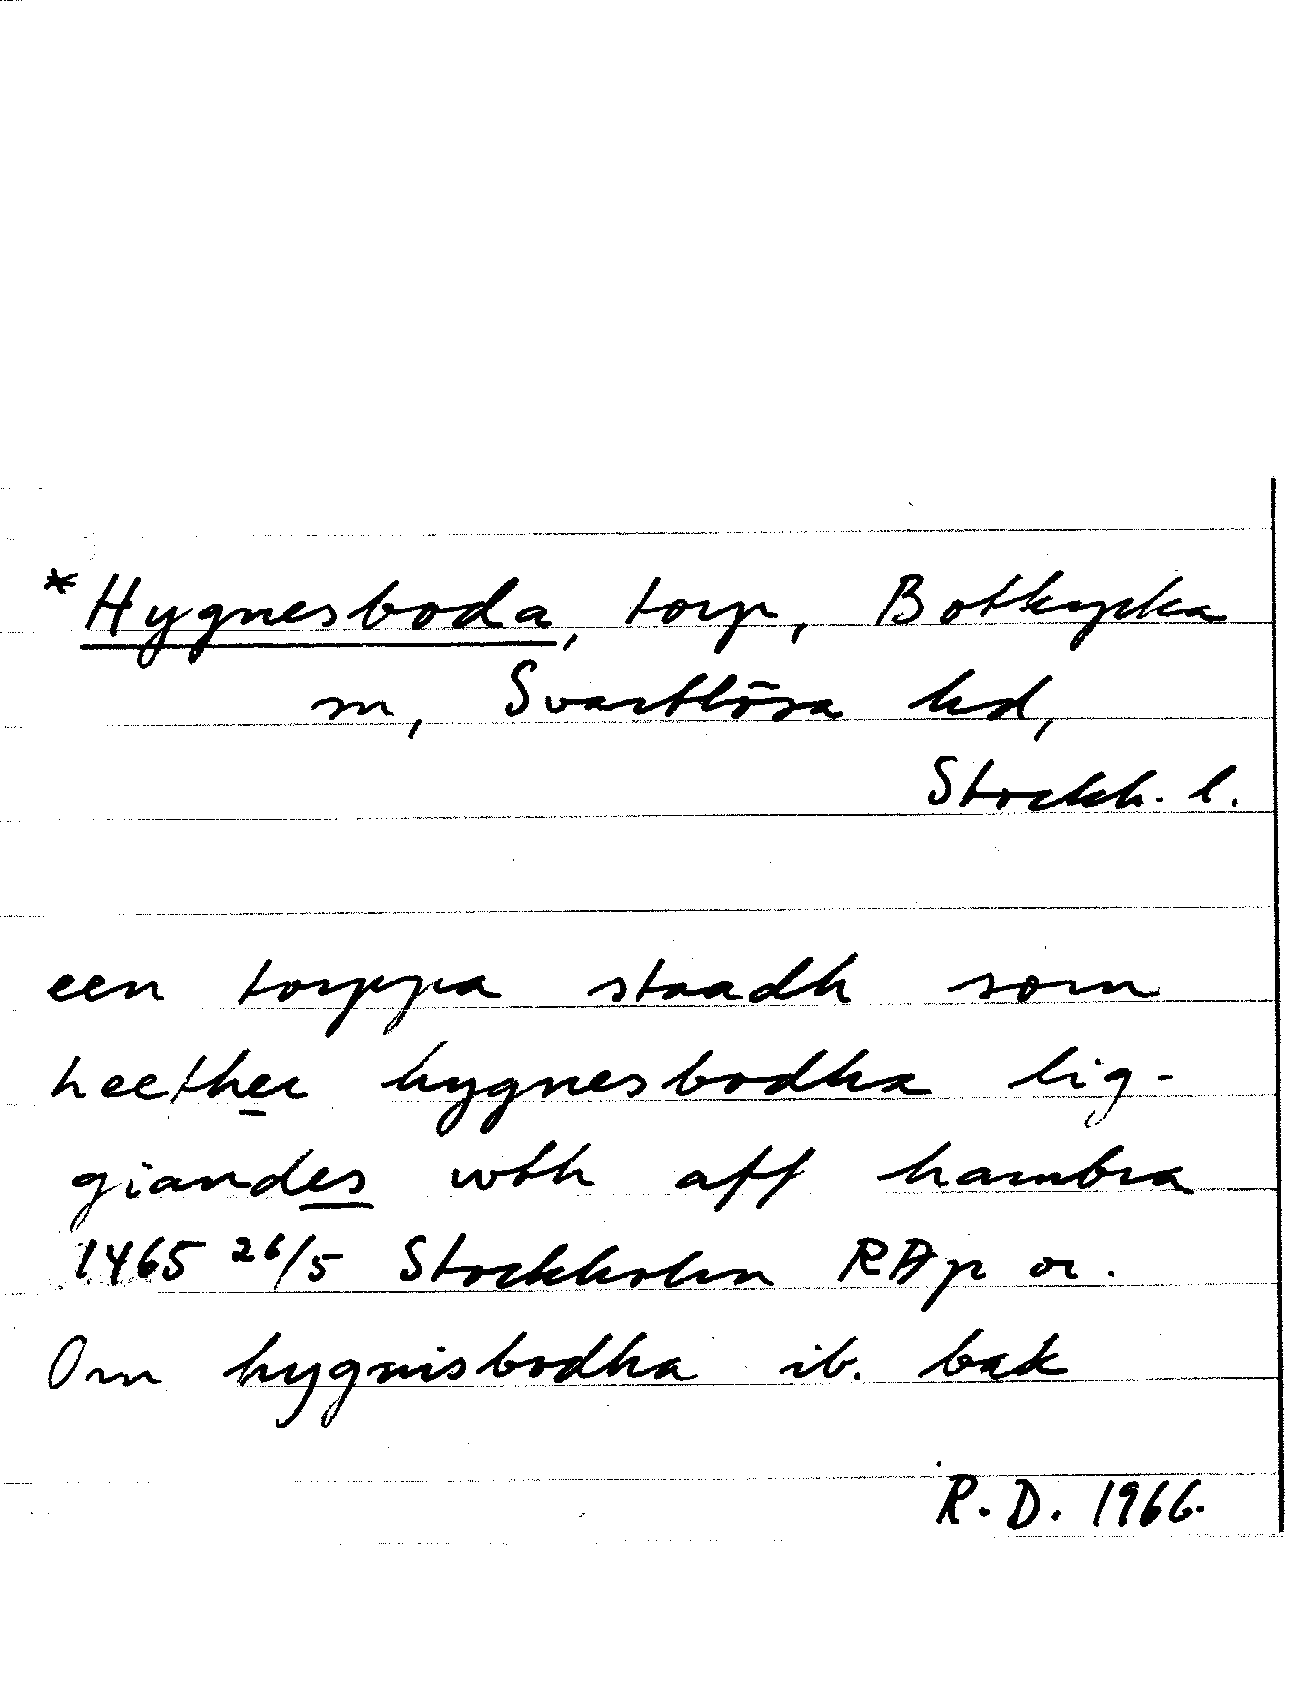 *Hygnesboda, torp, Botkyrka
sn, Svartlösa hd,
Stockh. l.
een torppa staadh som
heether hygnesbodha lig-
giandes wth aff hambra
1465 26/5 Stockholm RAp or.
Om hygnisbodha ib. bak
R.D. 1966.